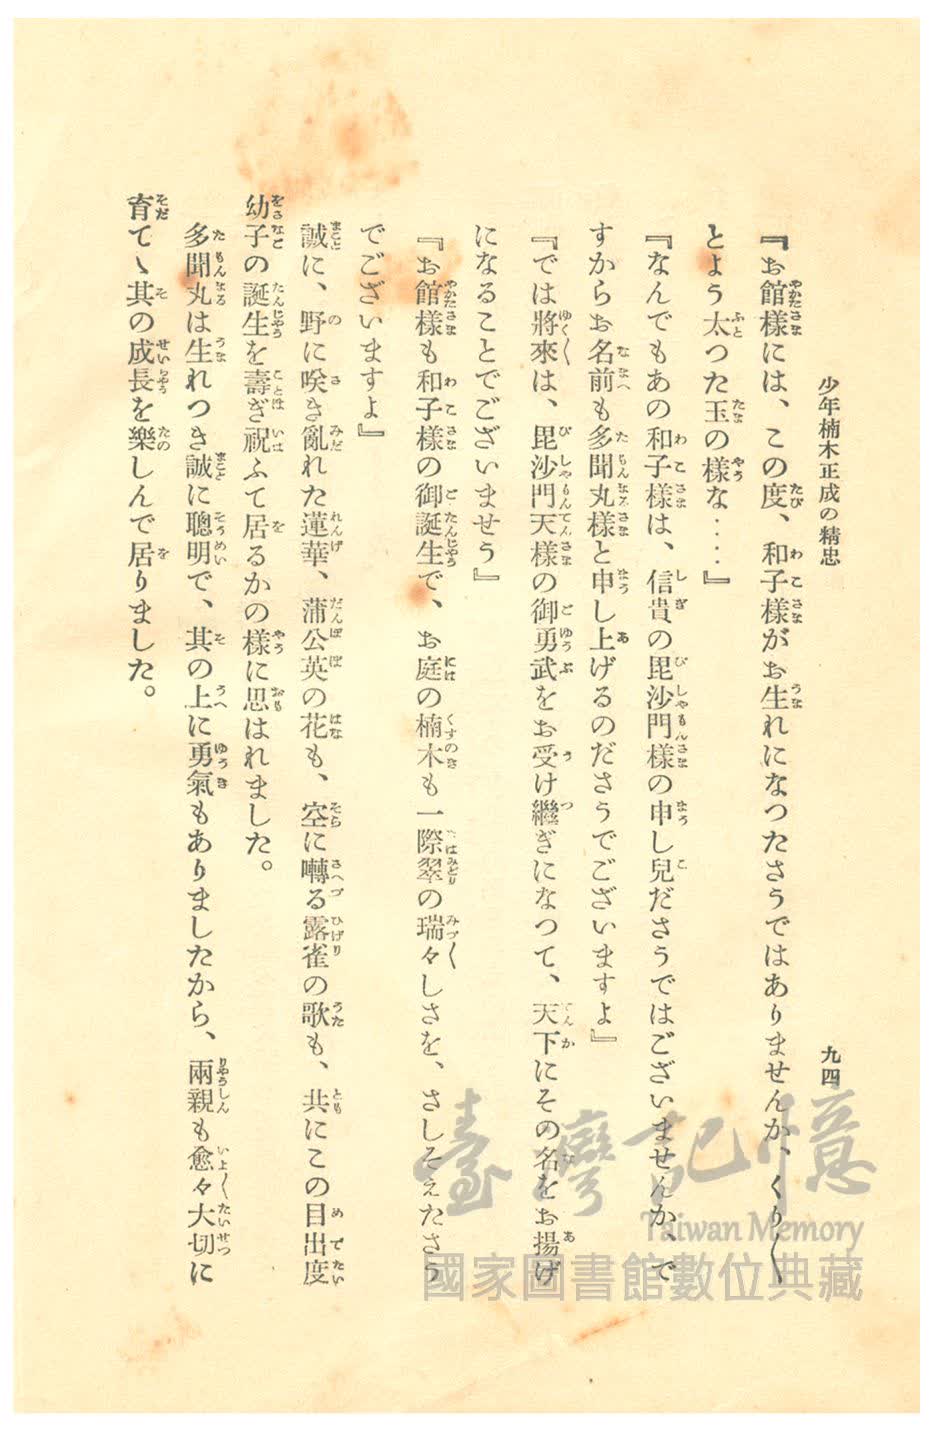 少年楠木正成の精忠
九四
『お館様には、この度、和子様がお生れになつたさうではありませんか、くり〱
とよう太つた玉の様な‥‥』
『なんでもあの和子様は、信貴の毘沙門様の申し兒ださうではございませんか、で
すからお名前も多聞丸様と申し上げるのださうでございますよ』
『では將來は、毘沙門天様の御勇武をお受け繼ぎになつて、天下にその名をお揚げ
になることでございませう』
『お館様も和子様の御誕生で、お庭の楠木も一際翠の瑞々しさを、さしそえたさう
でございますよ』
誠に、野に咲き亂れた蓮華、蒲公英の花も、空に囀る露雀の歌も、共にこの目出度
幼子の誕生を壽ぎ祝ふて居るかの様に思はれました。
多聞丸は生れつき誠に聰明で、其の上に勇氣もありましたから、兩親も愈々大切に
育てゝ其の成長を樂しんで居りました。
臺灣記憶
Taiwan Memory
國家圖書館數位典藏